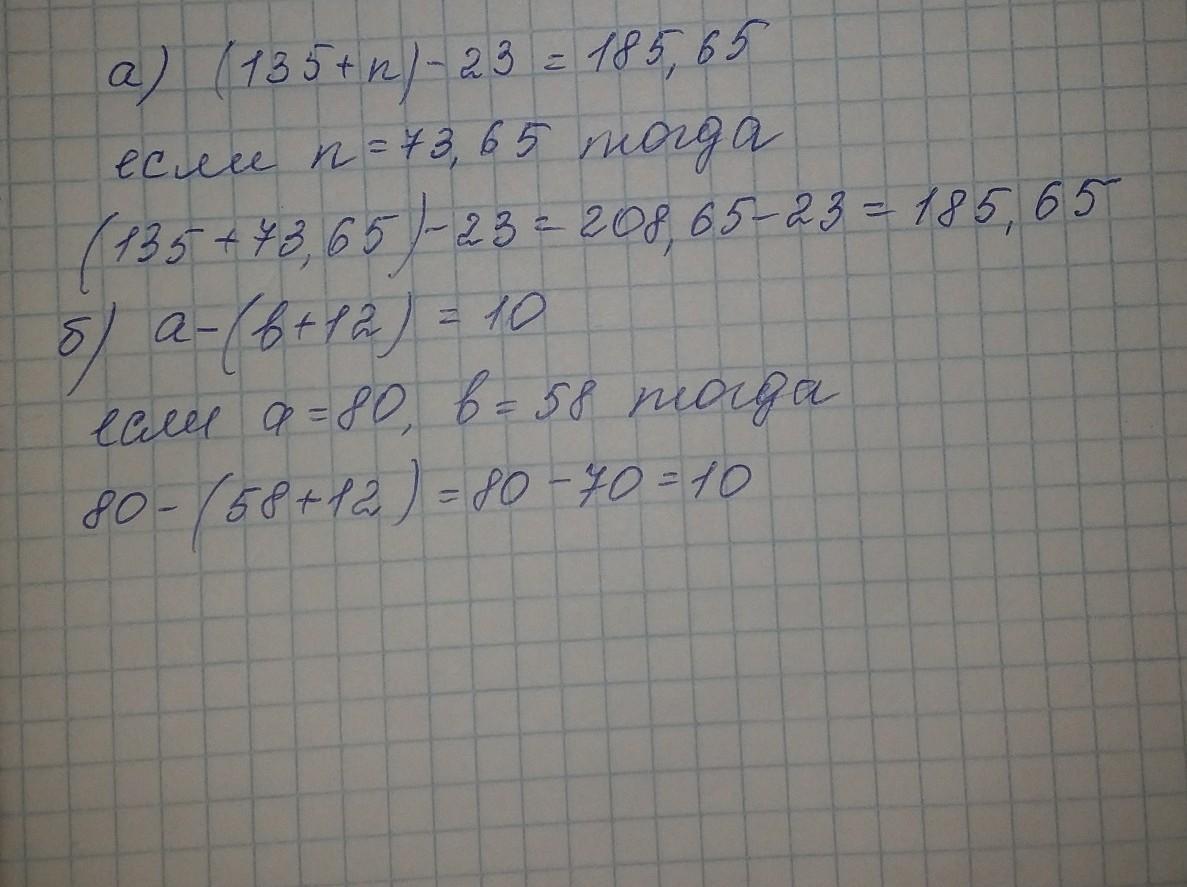 а) (135+n)-23 = 185,65
если n=73,65 тогда
(135+73,65)-23=208,65-23=185,65
б) a-(b+12)=10
если a=80, b=58 тогда
80-(58+12)=80-70=10